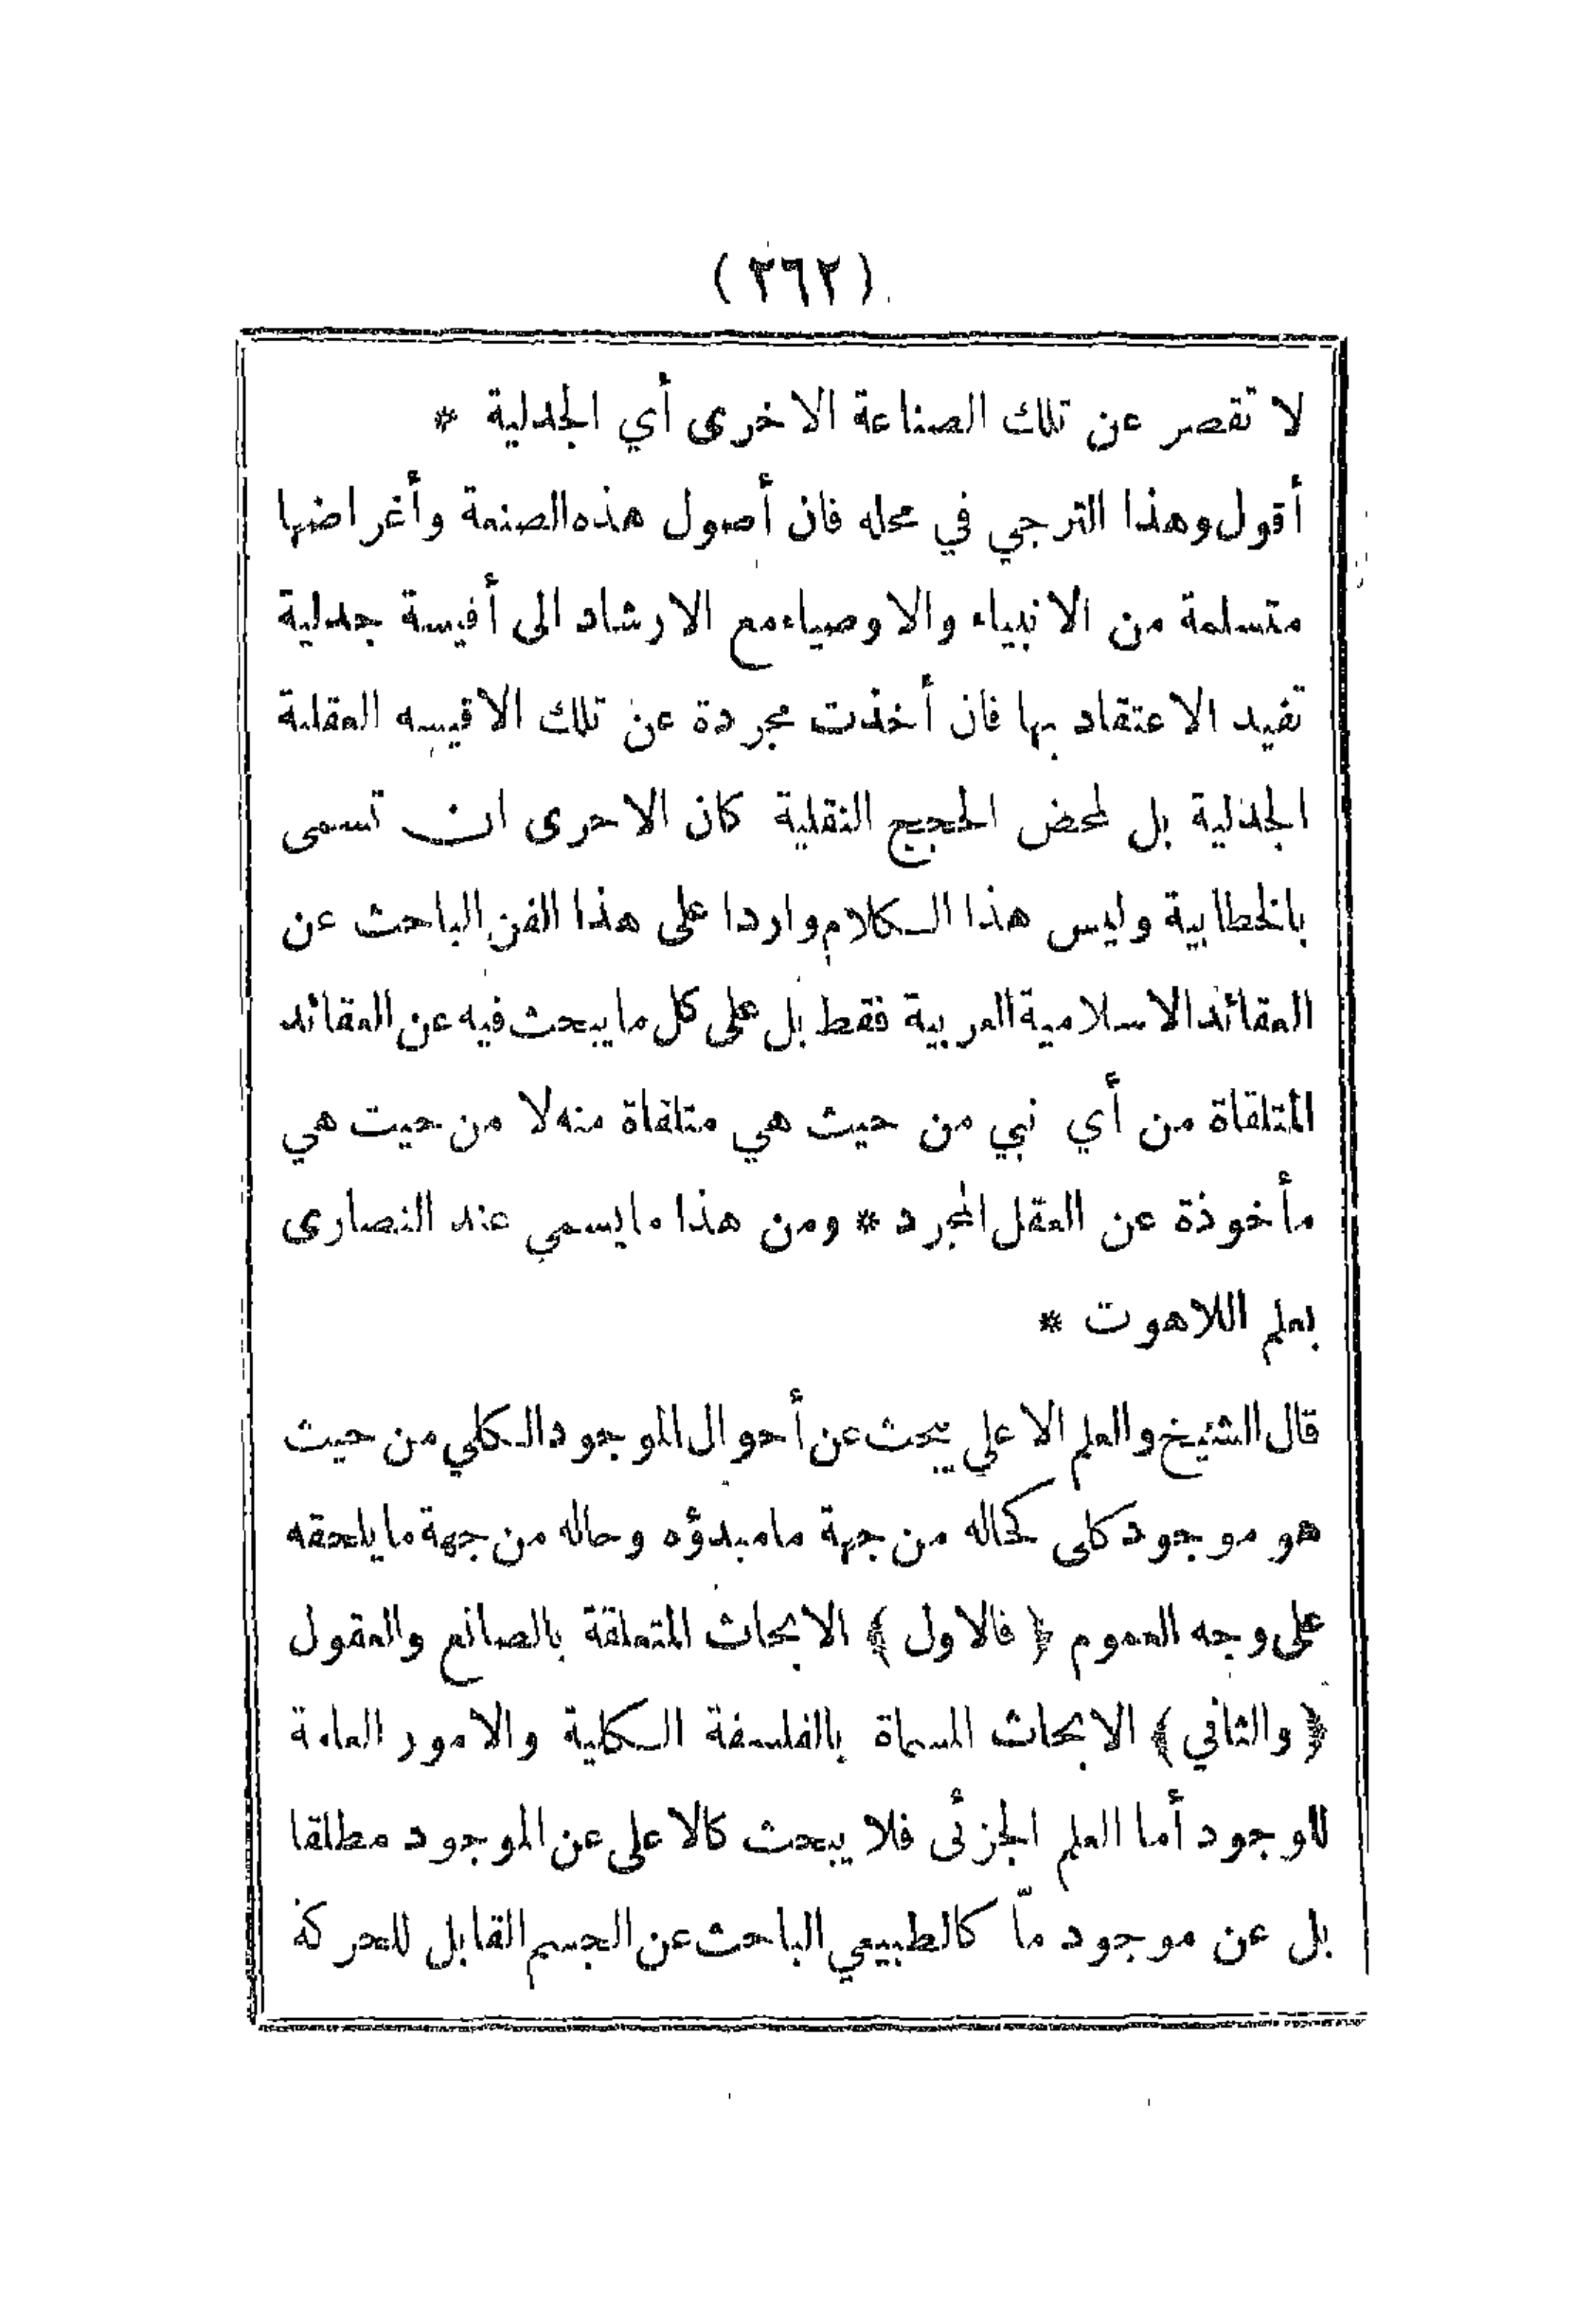 (٢٦٢)
لا تقصر عن تلك الصناعة الاخرى أي الجدلية *
أقول وهذا الترجي في محله فان أصول هذه الصنعة وأغراضها
متسلمة من الانبياء والاوصياء مع الارشاد الى أقيسة جدلية
تفيد الاعتقاد بها فان أخذت مجردة عن تلك الاقيسه العقلية
الجذلية بل لمحض الحجج النقلية كان الاحرى ان تسمى
بالخطابية وليس هذا الكلام واردا على هذا الفن الباحث عن
العقائد الاسلامية العربية فقط بل على كل ما يبحث فيه عن العقائد
المتلقاة من أي نبي من حيث هي متلقاة منه لا من حيت هي
مأخوذة عن العقل المجرد * ومن هذا ما يسمي عند النصارى
بعلم اللاهوت *
قال الشيخ والعلم الاعلي يبحث عن أحوال الموجود الكلي من حيث
هو موجود كلى كحاله من جهة ما مبدؤه وحاله من جهة ما يلحقه
على وجه العموم ﴿ فالاول ﴾ الابحاث المتعلقة بالصانع والعقول
﴿ والثاني ﴾ الابحاث المسماة بالفلسفة الكلية والامور العامة
للوجود أما العلم الجزئى فلا يبحث كالاعلى عن الموجود مطلقا
بل عن موجود مّا كالطبيعي الباحث عن الجسم القابل للحركة